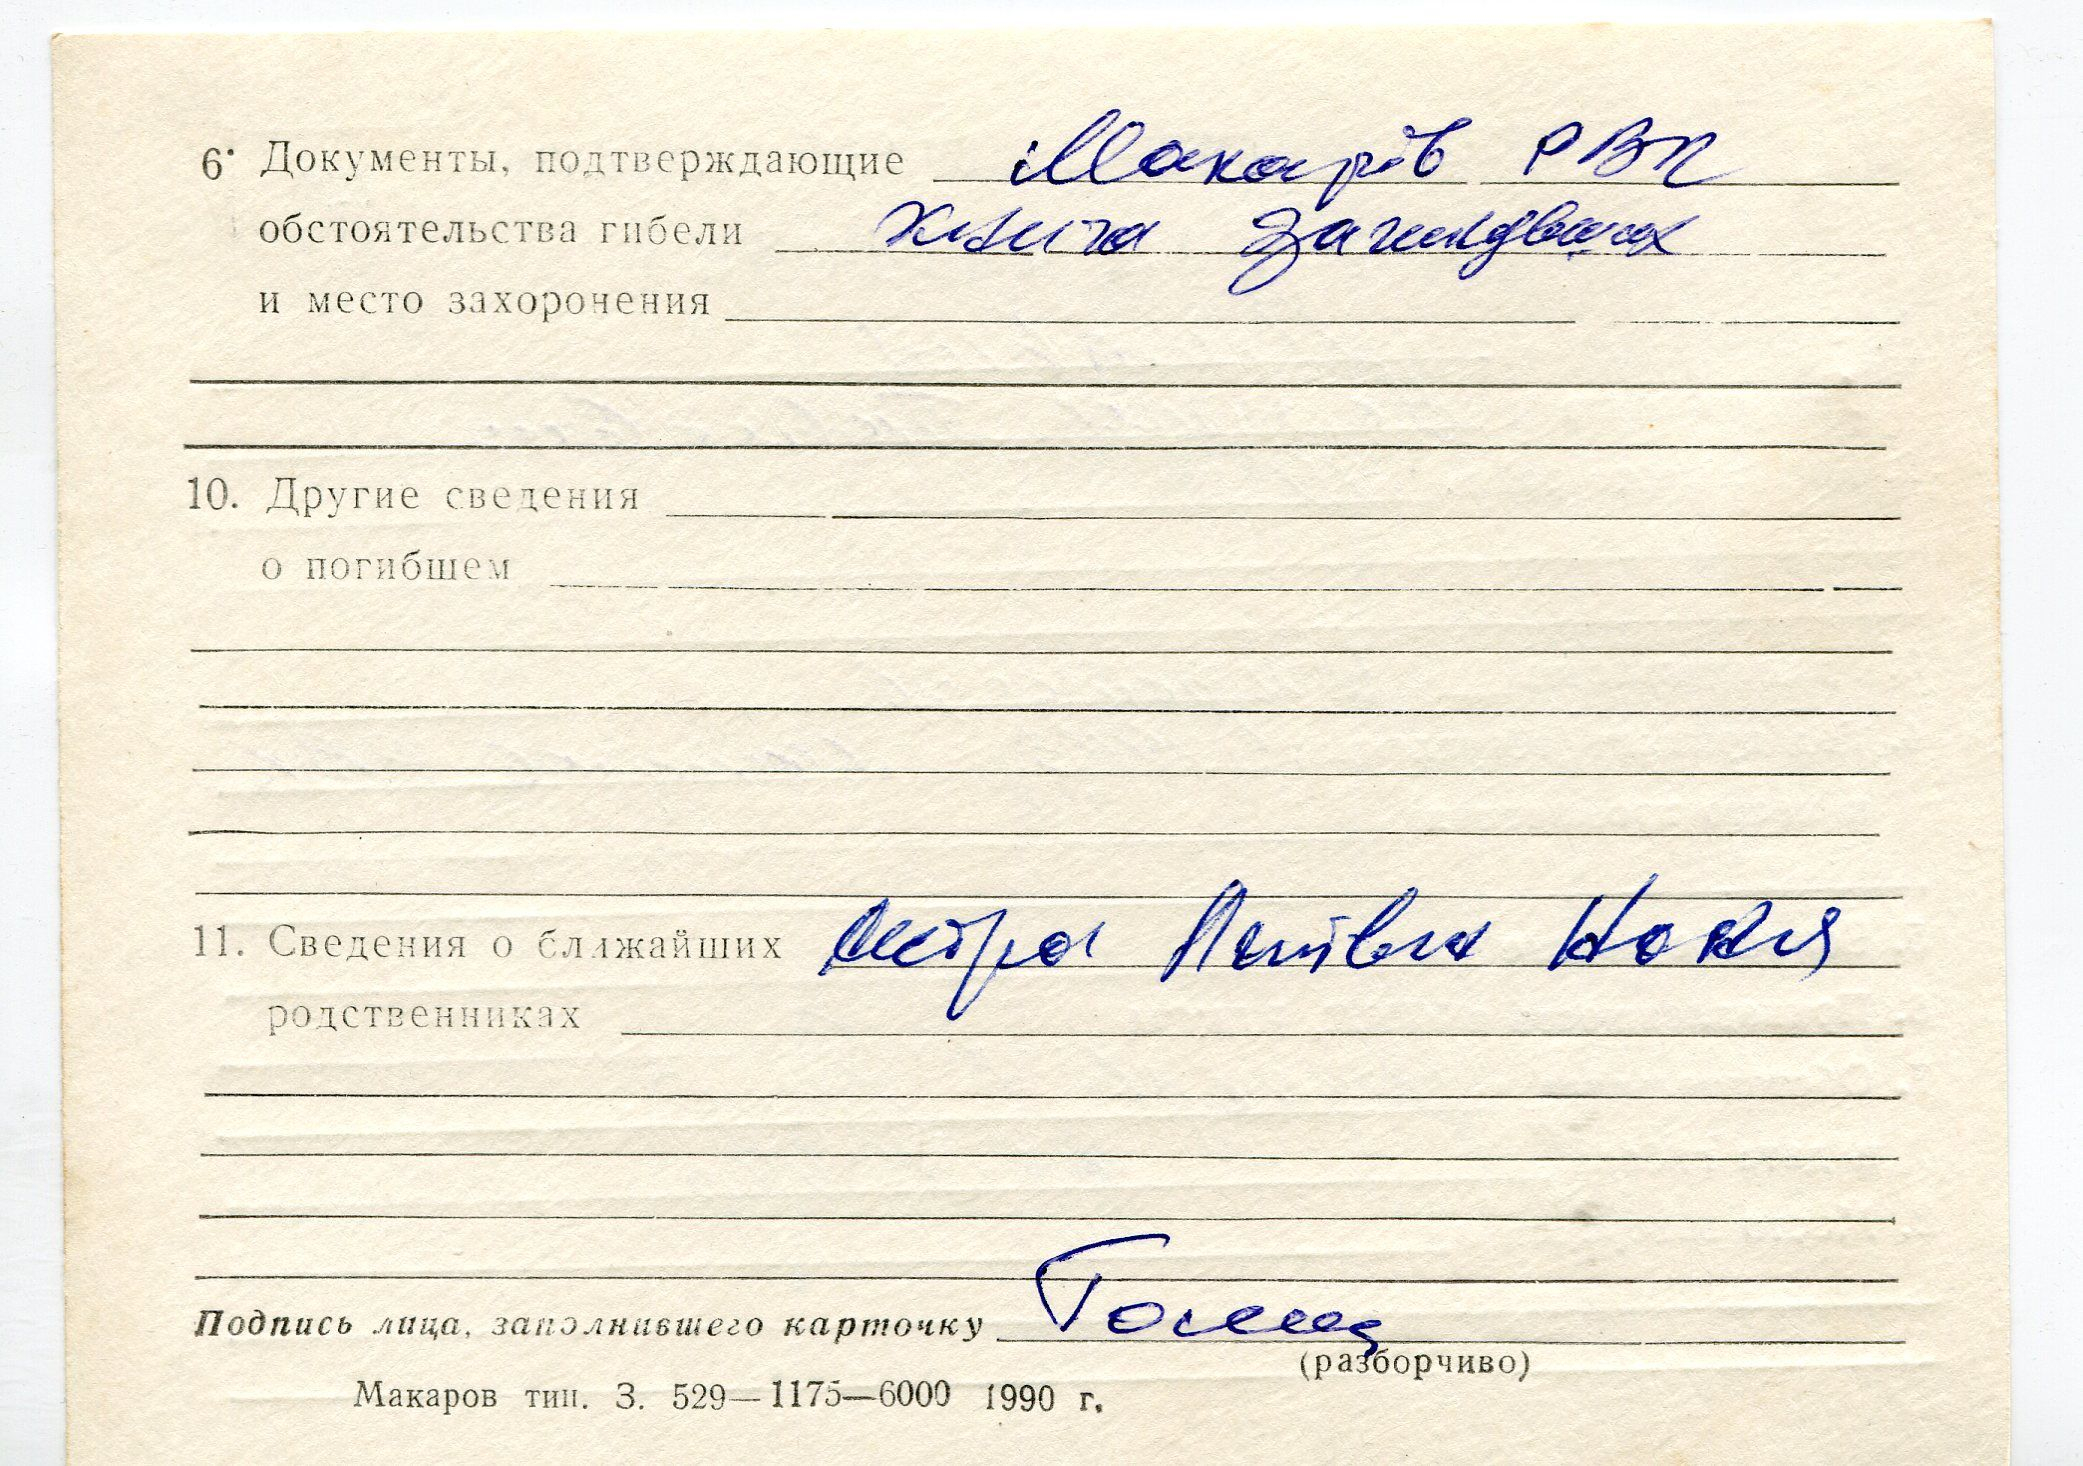 6. Документы, подтверждающие Макарів РВК
обстоятельства гибели книга загинувших
и место захоронения
10. Другие сведения
о погибшем
11. Сведения о ближайших
родственниках
Подпись лица, заполнившего карточку
(разборчиво)
Макаров тип. З. 529—1175—6000 1990 г.